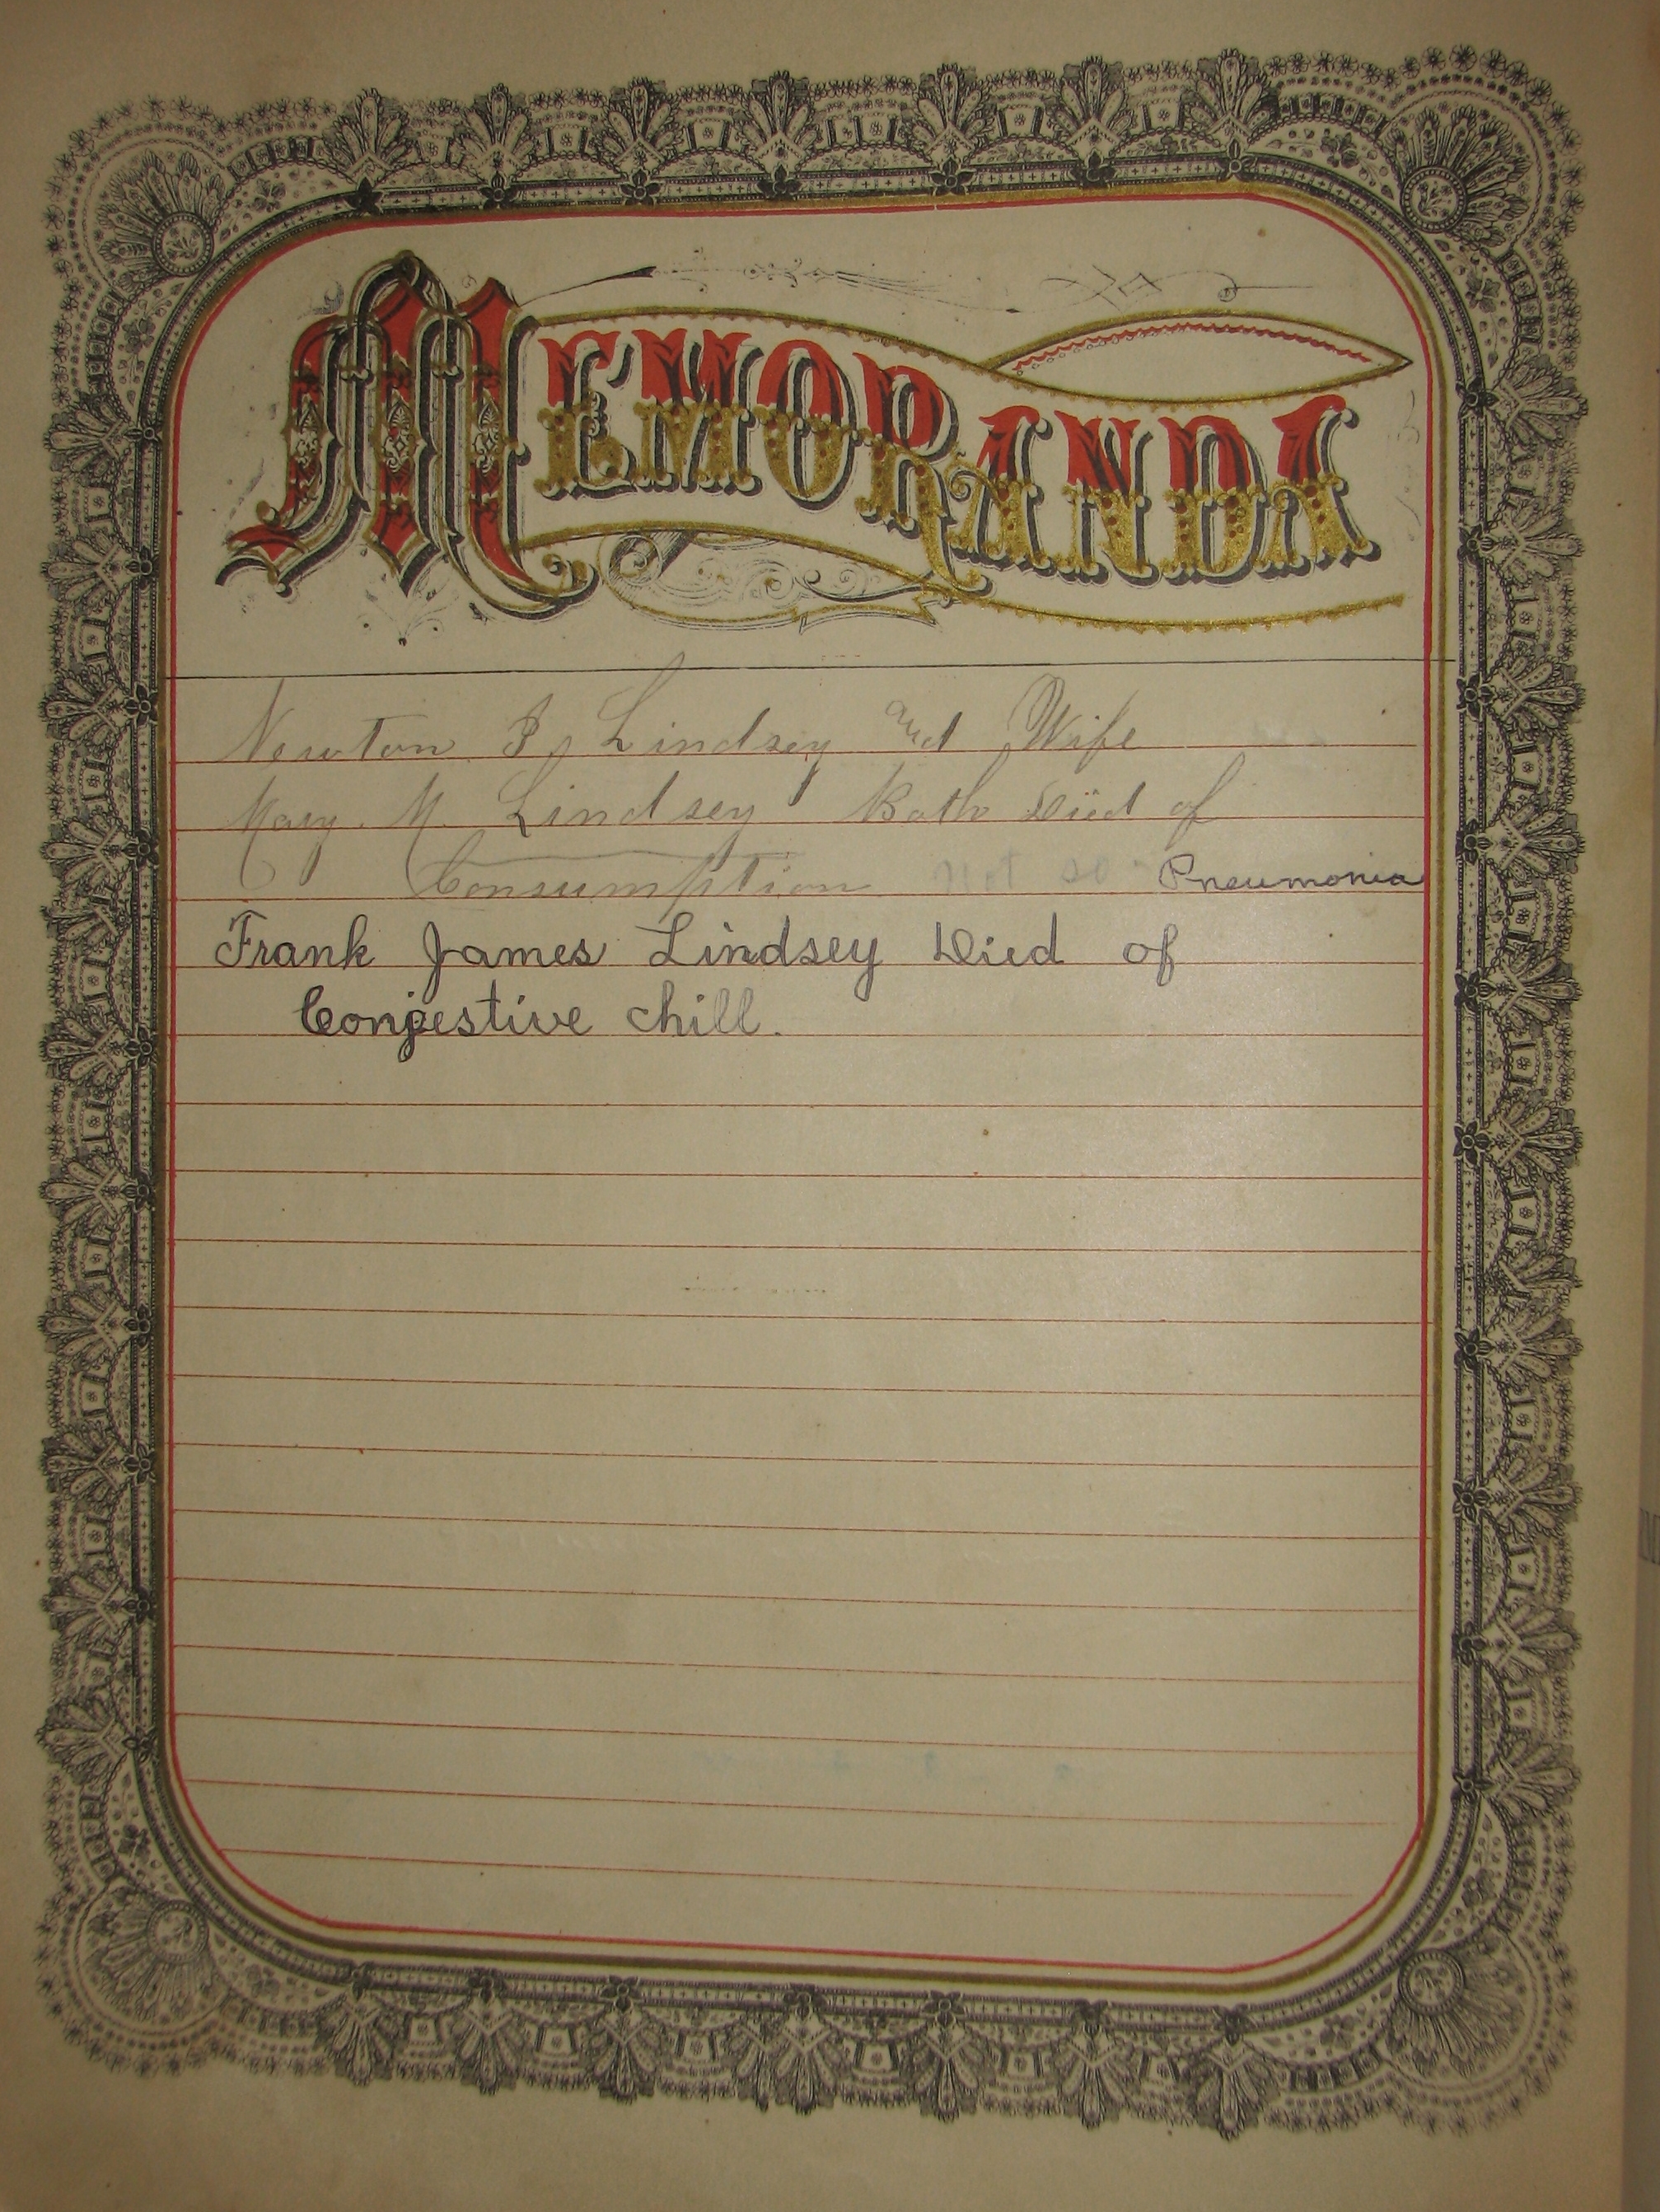 MEMORANDA
Newton J. Lindsey and Wife
Mary. M. Lindsey Both Died of
Consumption Not so Pneumonia
Frank James Lindsey Died of
Congestive chill.